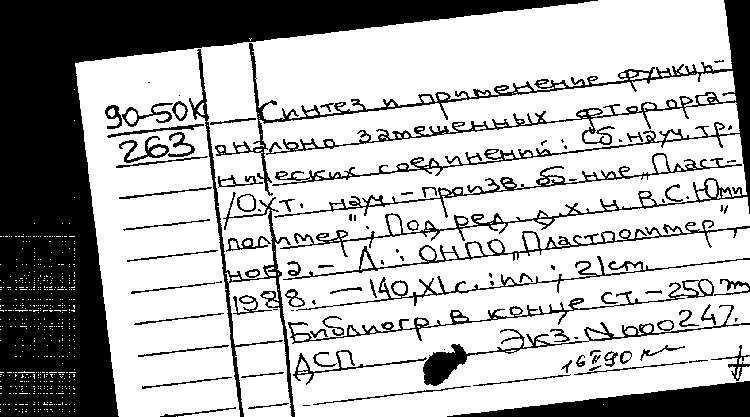 90-50К
263
Синтез и применение функци-
онально замещенных фторорга-
нических соединений: Сб. науч. тр.
/Охт. науч.-произв. об-ние „Пласт-
полимер"; Под ред. д. х. н. В.С. Юми
нова. - Л.: ОНПО „Пластполимер",
1988. — 140, XI с. : ил. ; 21 см.
Библиогр. в конце ст. - 250
ДСП. Экз. N 000247.
16 II 90